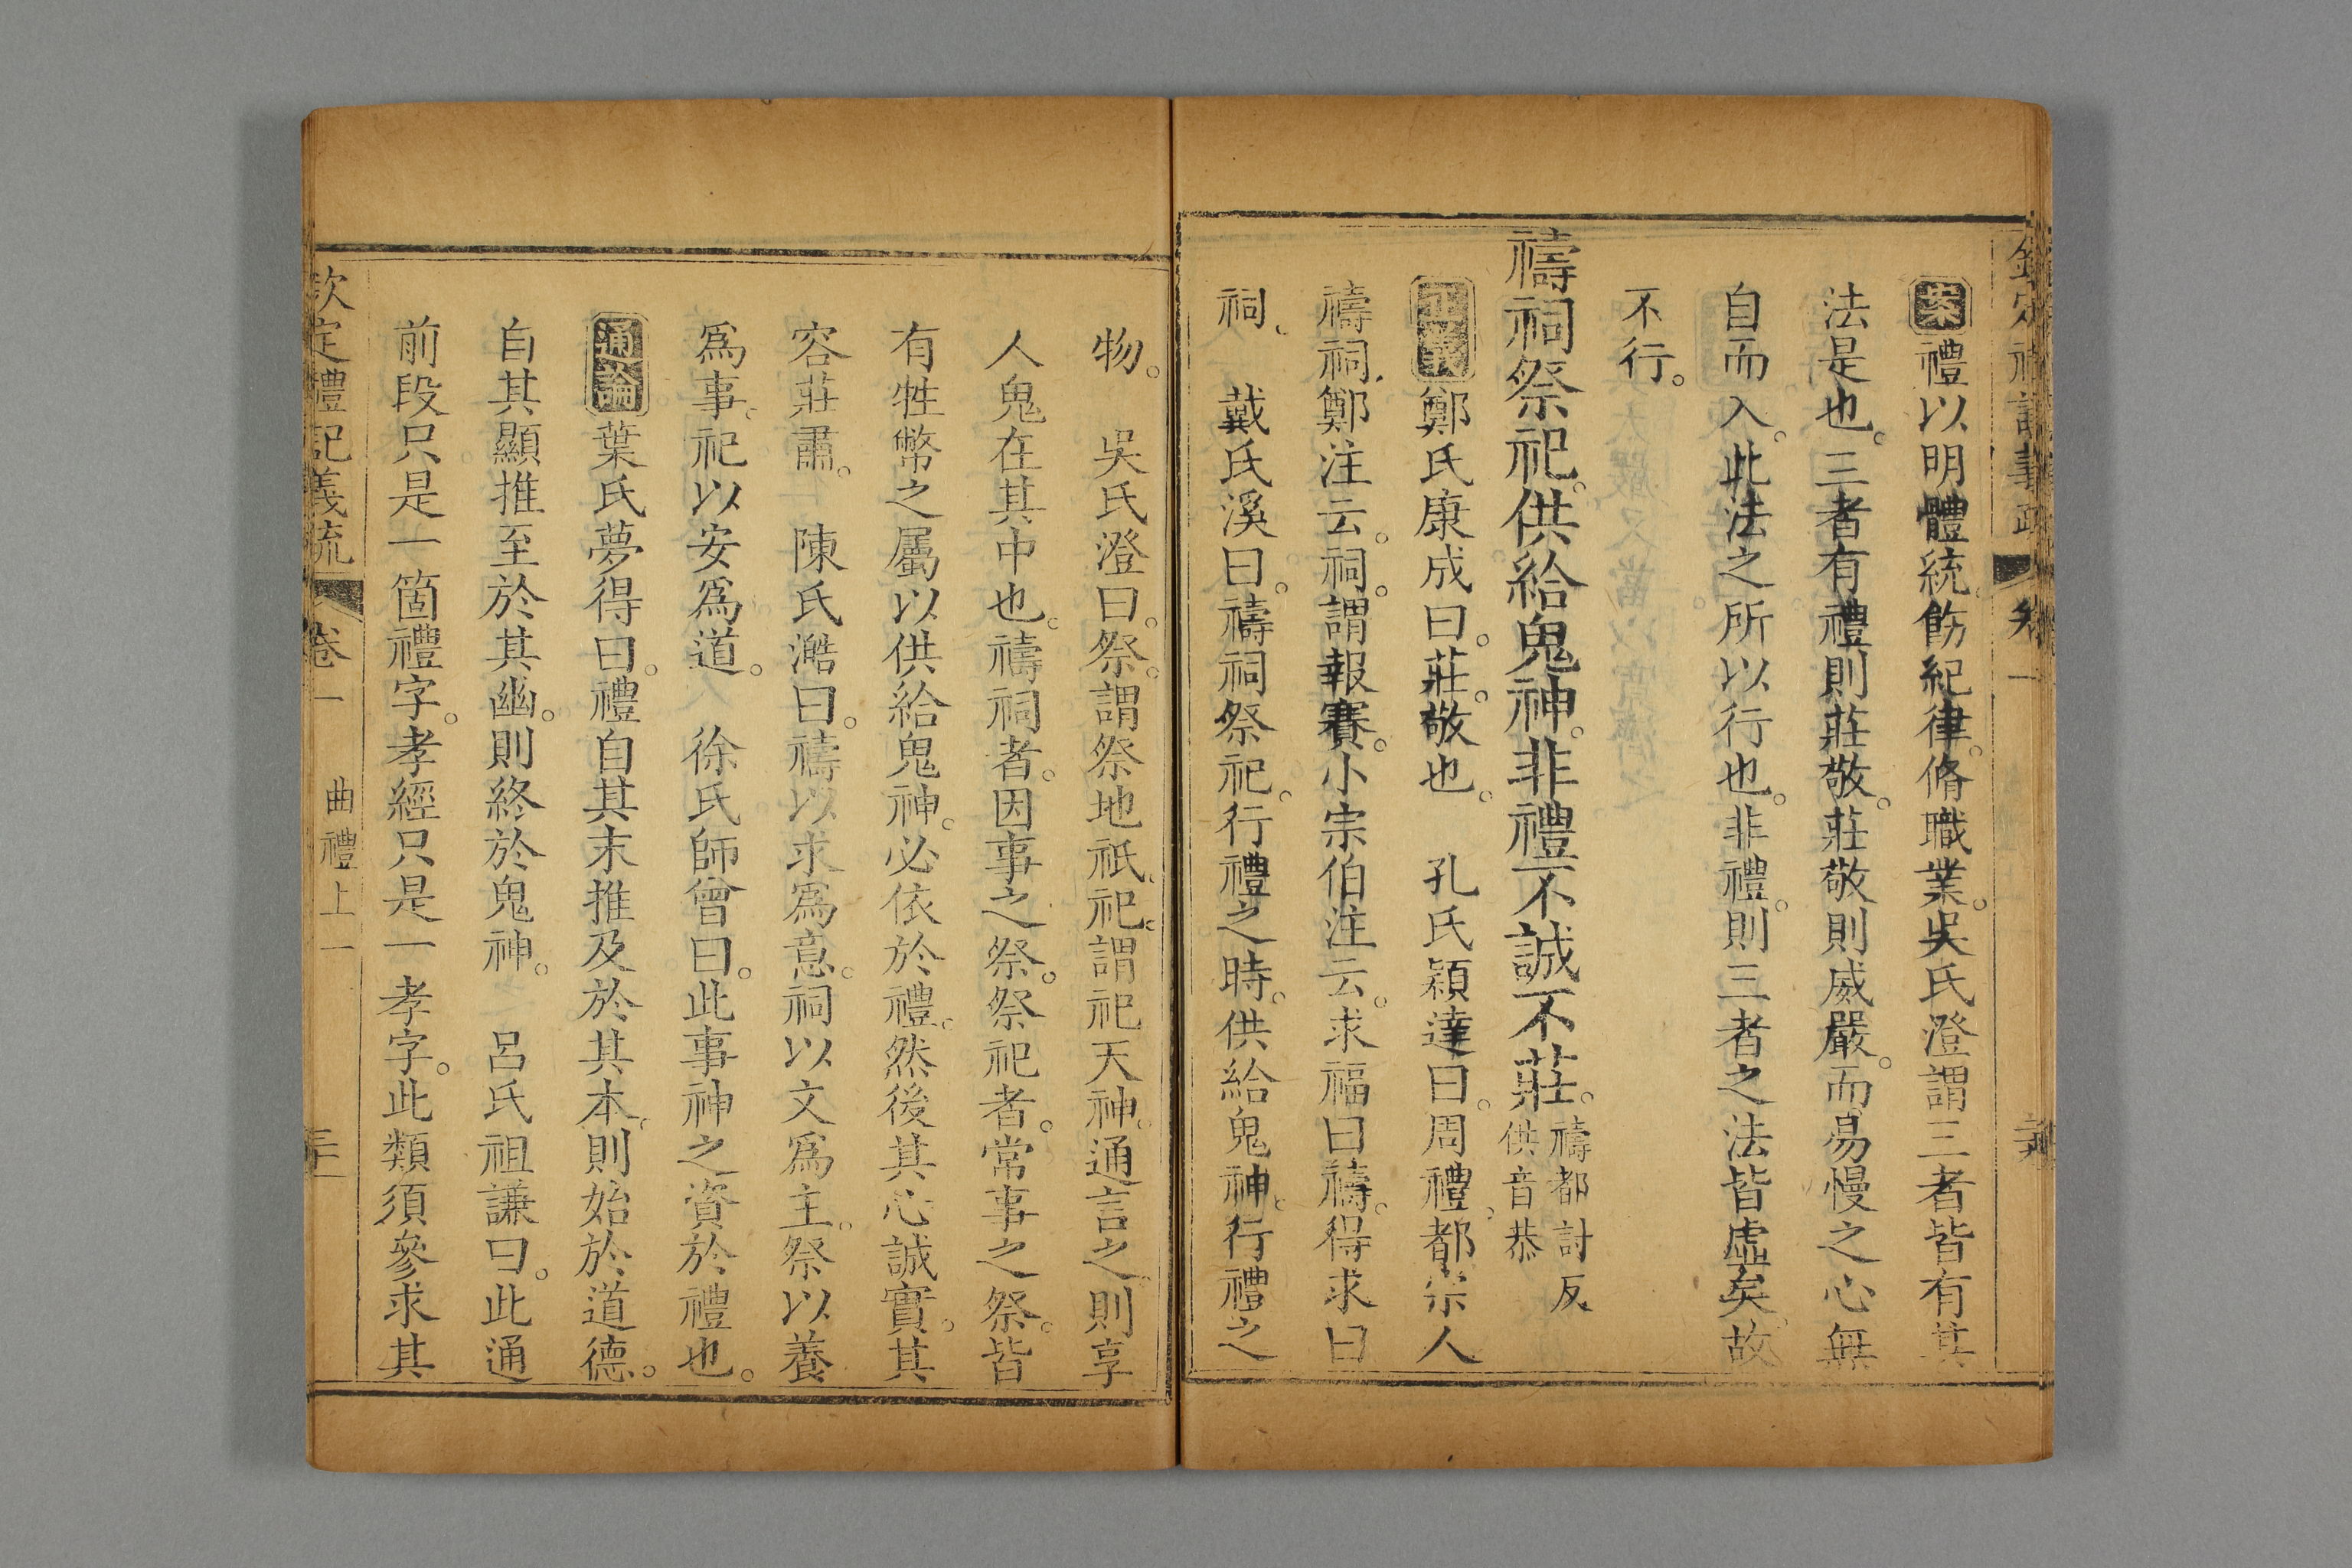 欽定禮記義疏 卷一
案禮以明體統。飭紀律。脩職業。吳氏澄謂三者皆有其
法是也。三者有禮則莊敬。莊敬則威嚴。而易慢之心無
自而入。此法之所以行也。非禮。則三者之法皆虛矣。故
不行。
禱祠祭祀。供給鬼神。非禮不誠不莊。禱都討反
供音恭
正義鄭氏康成曰。莊。敬也。 孔氏穎達曰。周禮、都宗人
禱祠、鄭注云。祠。謂報賽。小宗伯注云。求福曰禱。得求曰
祠、 戴氏溪曰。禱祠祭祀。行禮之時。供給鬼神。行禮之
物。 吳氏澄曰。祭。謂祭地祇、祀。謂祀天神。通言之、則享
人鬼在其中也。禱祠者。因事之祭。祭祀者。常事之祭。皆
有牲幣之屬以供給鬼神。必依於禮。然後其心誠實。其
容莊肅。 陳氏澔曰。禱以求爲意。祠以文爲主。祭以養
爲事。祀以安爲道。 徐氏師曾曰。此事神之資於禮也。
通論葉氏夢得曰。禮自其末推及於其本、則始於道德。
自其顯推至於其幽。則終於鬼神。 呂氏祖謙曰。此通
前段只是一箇禮字。孝經只是一孝字。此類須參求其
欽定禮記義疏 卷一 曲禮上一